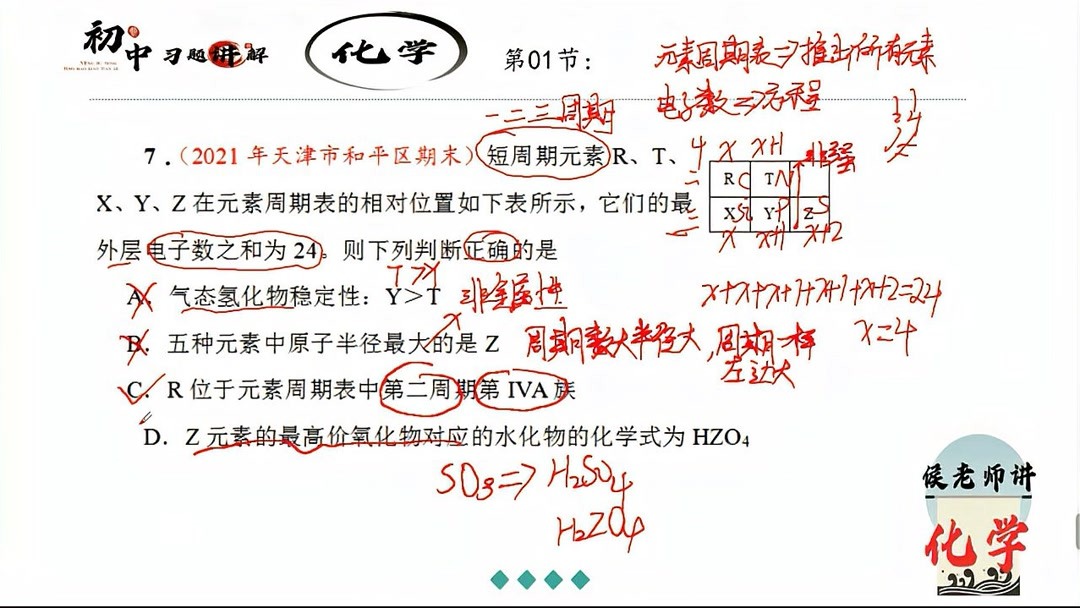 初中习题讲解
化学
第01节：
元素周期表⇒推出所有元素
电子数⇒方程
一二三周期
7．（2021年天津市和平区期末）短周期元素R、T、
4 X X+1 非强
二 R C T N
三 X Si Y P Z S
X X+1 X+2
X、Y、Z在元素周期表的相对位置如下表所示，它们的最
外层电子数之和为24。则下列判断正确的是
T>Y
A．气态氢化物稳定性：Y＞T 非金属性
X+X+X+1+X+1+X+2=24
X=4
B．五种元素中原子半径最大的是Z X 周期数大半径大，周期一样
左边大
C．R位于元素周期表中第二周期第IVA族
D．Z元素的最高价氧化物对应的水化物的化学式为HZO₄
SO₃⇒H₂SO₄
H₂ZO₄
侯老师讲
化学